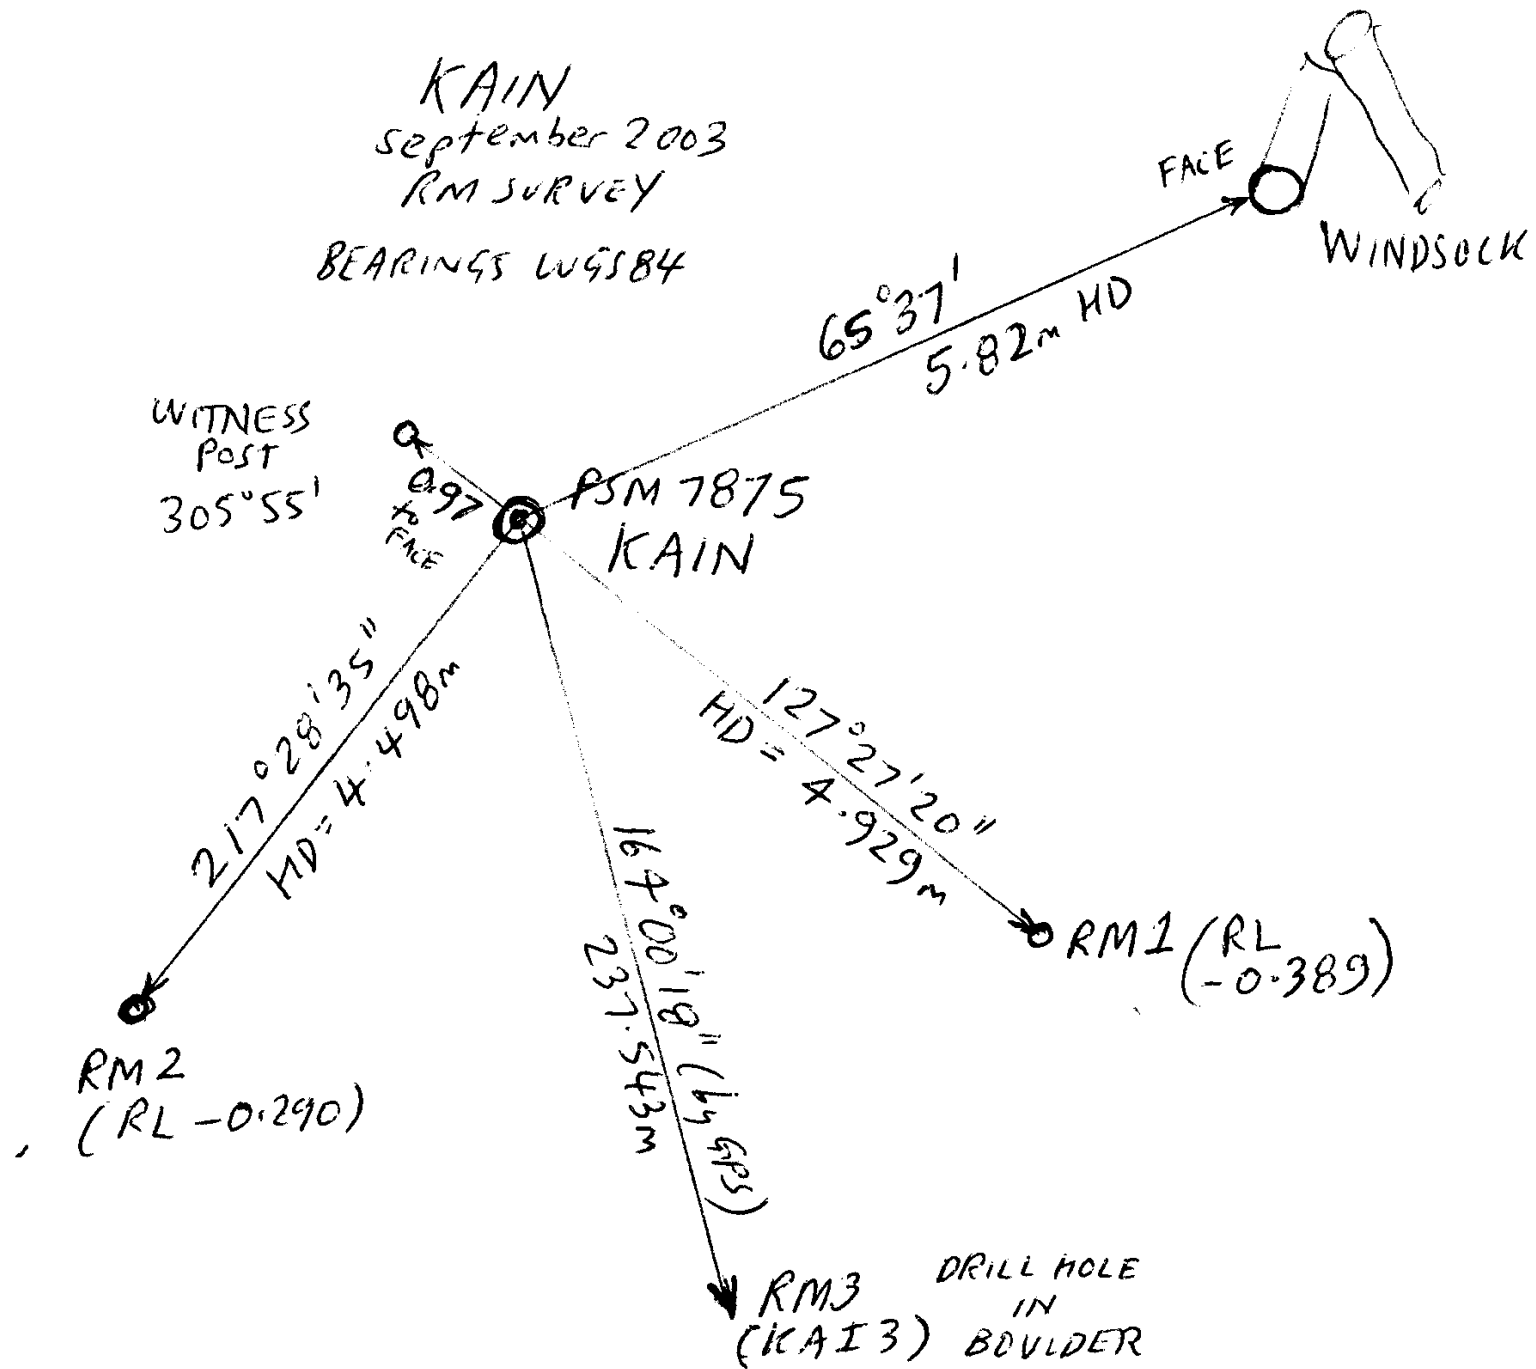 KAIN
September 2003
RM SURVEY
BEARINGS WGS84
FACE
WINDSOCK
65°37'
5.82m HD
WITNESS
POST
305°55'
0.97
to
FACE
PSM 7875
KAIN
217°28'35"
HD= 4.498m
127°27'20"
HD= 4.929m
164°00'18" (by GPS)
237.543m
RM1 (RL
-0.389)
RM2
(RL -0.290)
RM3
(KAI3)
DRILL HOLE
IN
BOULDER